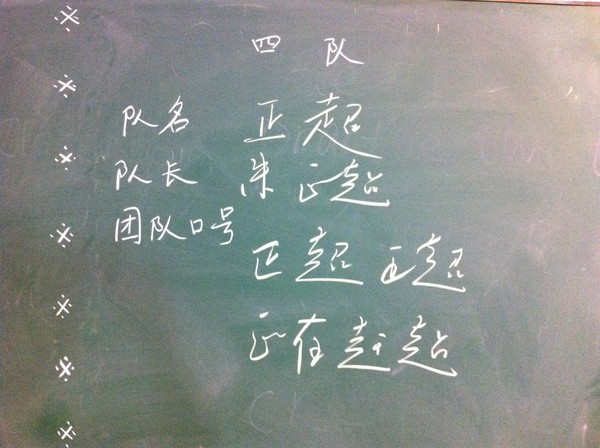 四 队
队名 正超
队长 朱正超
团队口号
正超 正超
正在赶超